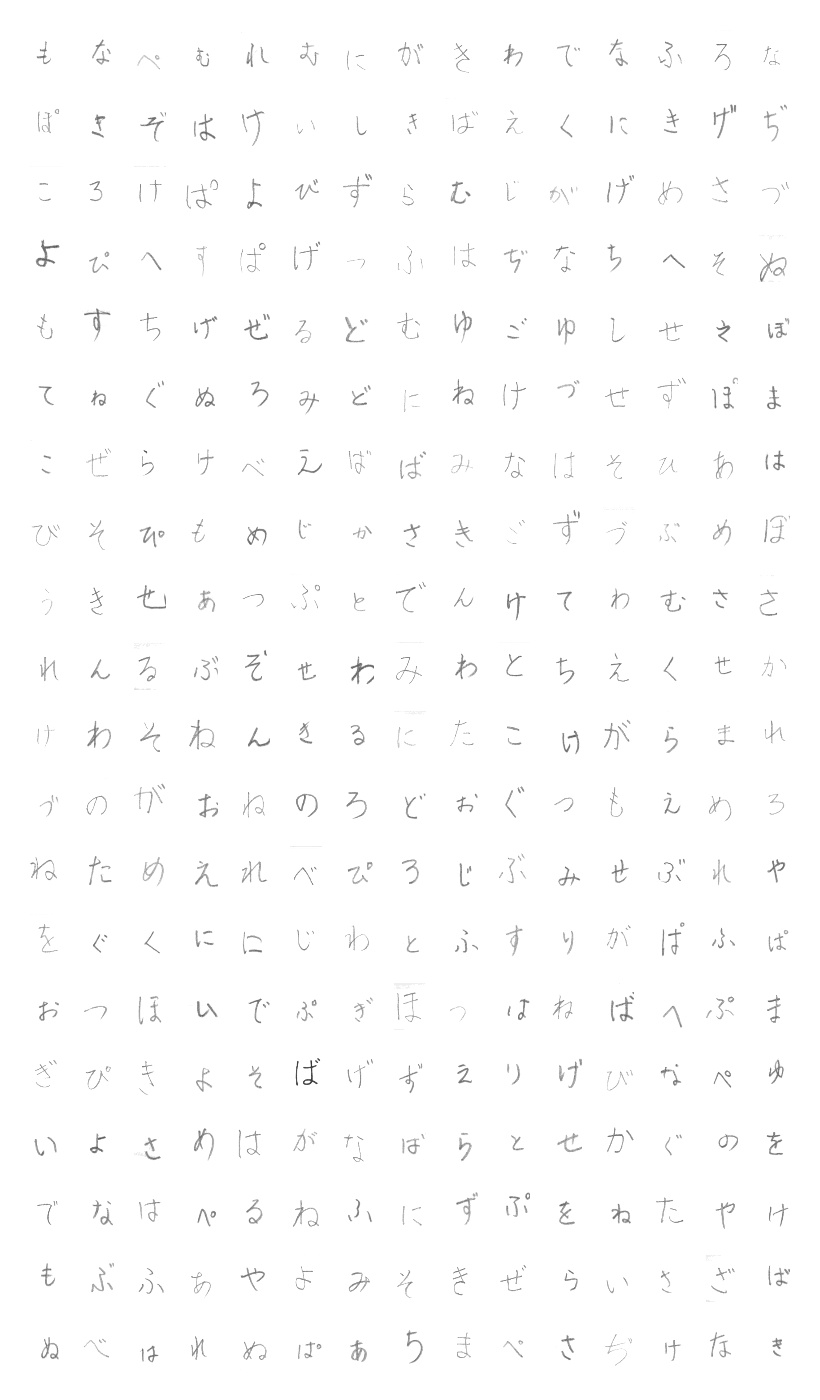 もなぺむれむにがきわでなふろな
ぽきぞはけいしきばえくにきげぢ
ころけぱよびずらむじがげめさづ
よぴへすぱげっふはぢなちへそぬ
もすちげぜるどむゆごゆしせえぼ
てねぐぬろみどにねけづせずぽま
こぜらけべえばばみなはそひあは
びそぴもめじかさきごずづぶめぼ
うきせあつぷとでんけてわむささ
れんるぶぞせわみわとちえくせか
けわそねんきるにたこけがらまれ
づのがおねのろどおぐつもえめろ
ねためえれべぴろじぶみせぶれや
をぐくににじわとふすりがぱふぱ
おつほいでぷぎほっはねばへぷま
ぎぴきよそばげずえりげびなぺゆ
いよさめはがなばらとせかぐのを
でなはぺるねふにずぷをねたやけ
もぶふあやよみそきぜらいさざば
ぬべはれぬぱあちまぺさぢけなき